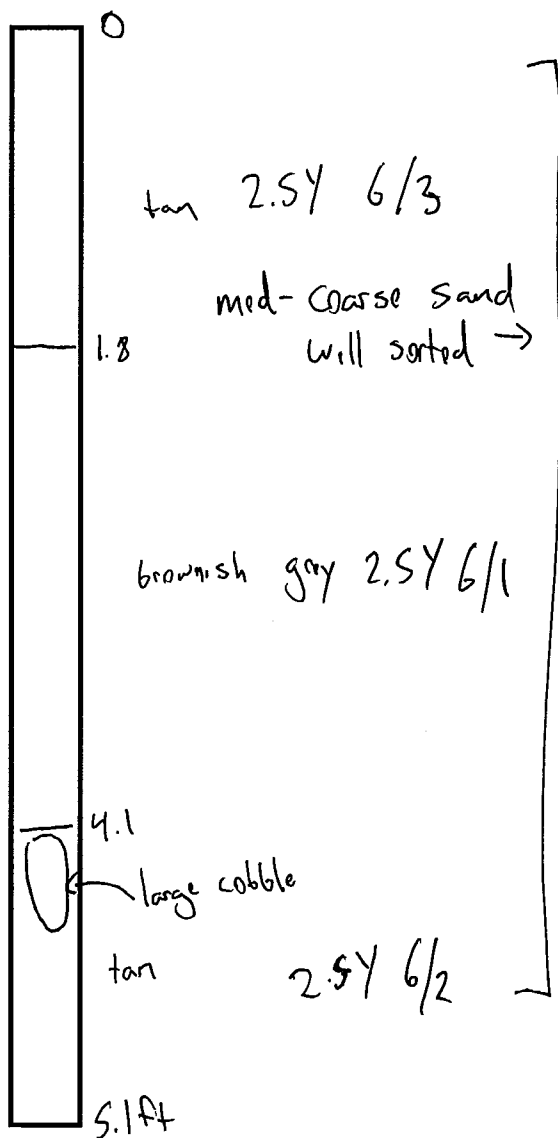 0
tan 2.5Y 6/3
med-coarse sand
will sorted →
1.8
brownish gray 2.5Y 6/1
4.1
large cobble
tan 2.5Y 6/2
5.1ft